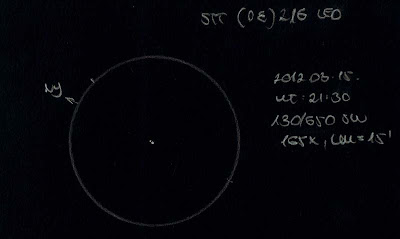 STT (OΣ) 216 LEO
Ny
2012.03.15.
UT: 21:30
130/650 SW
165x, LM=15'